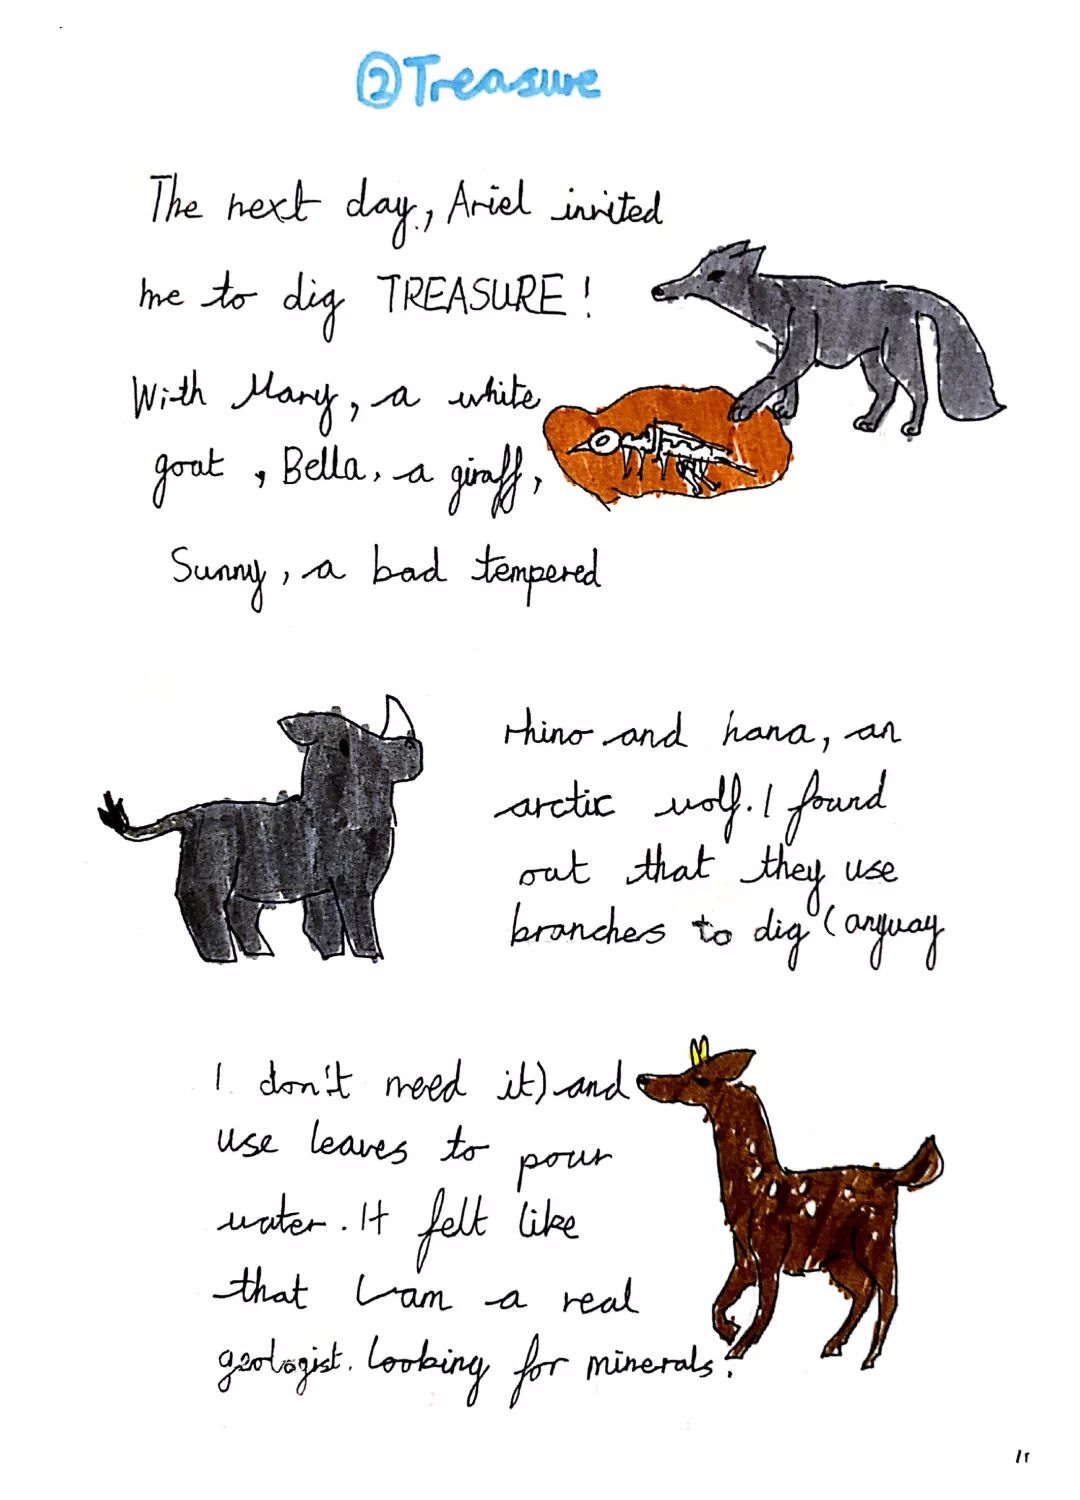 ②Treasure
The next day, Ariel invited
me to dig TREASURE!
With Mary, a white
goat, Bella, a giraff,
Sunny, a bad tempered
rhino and hana, an
arctic wolf. I found
out that they use
branches to dig (anyway
I don't need it) and
use leaves to pour
water. It felt like
that I am a real
geologist. looking for minerals.